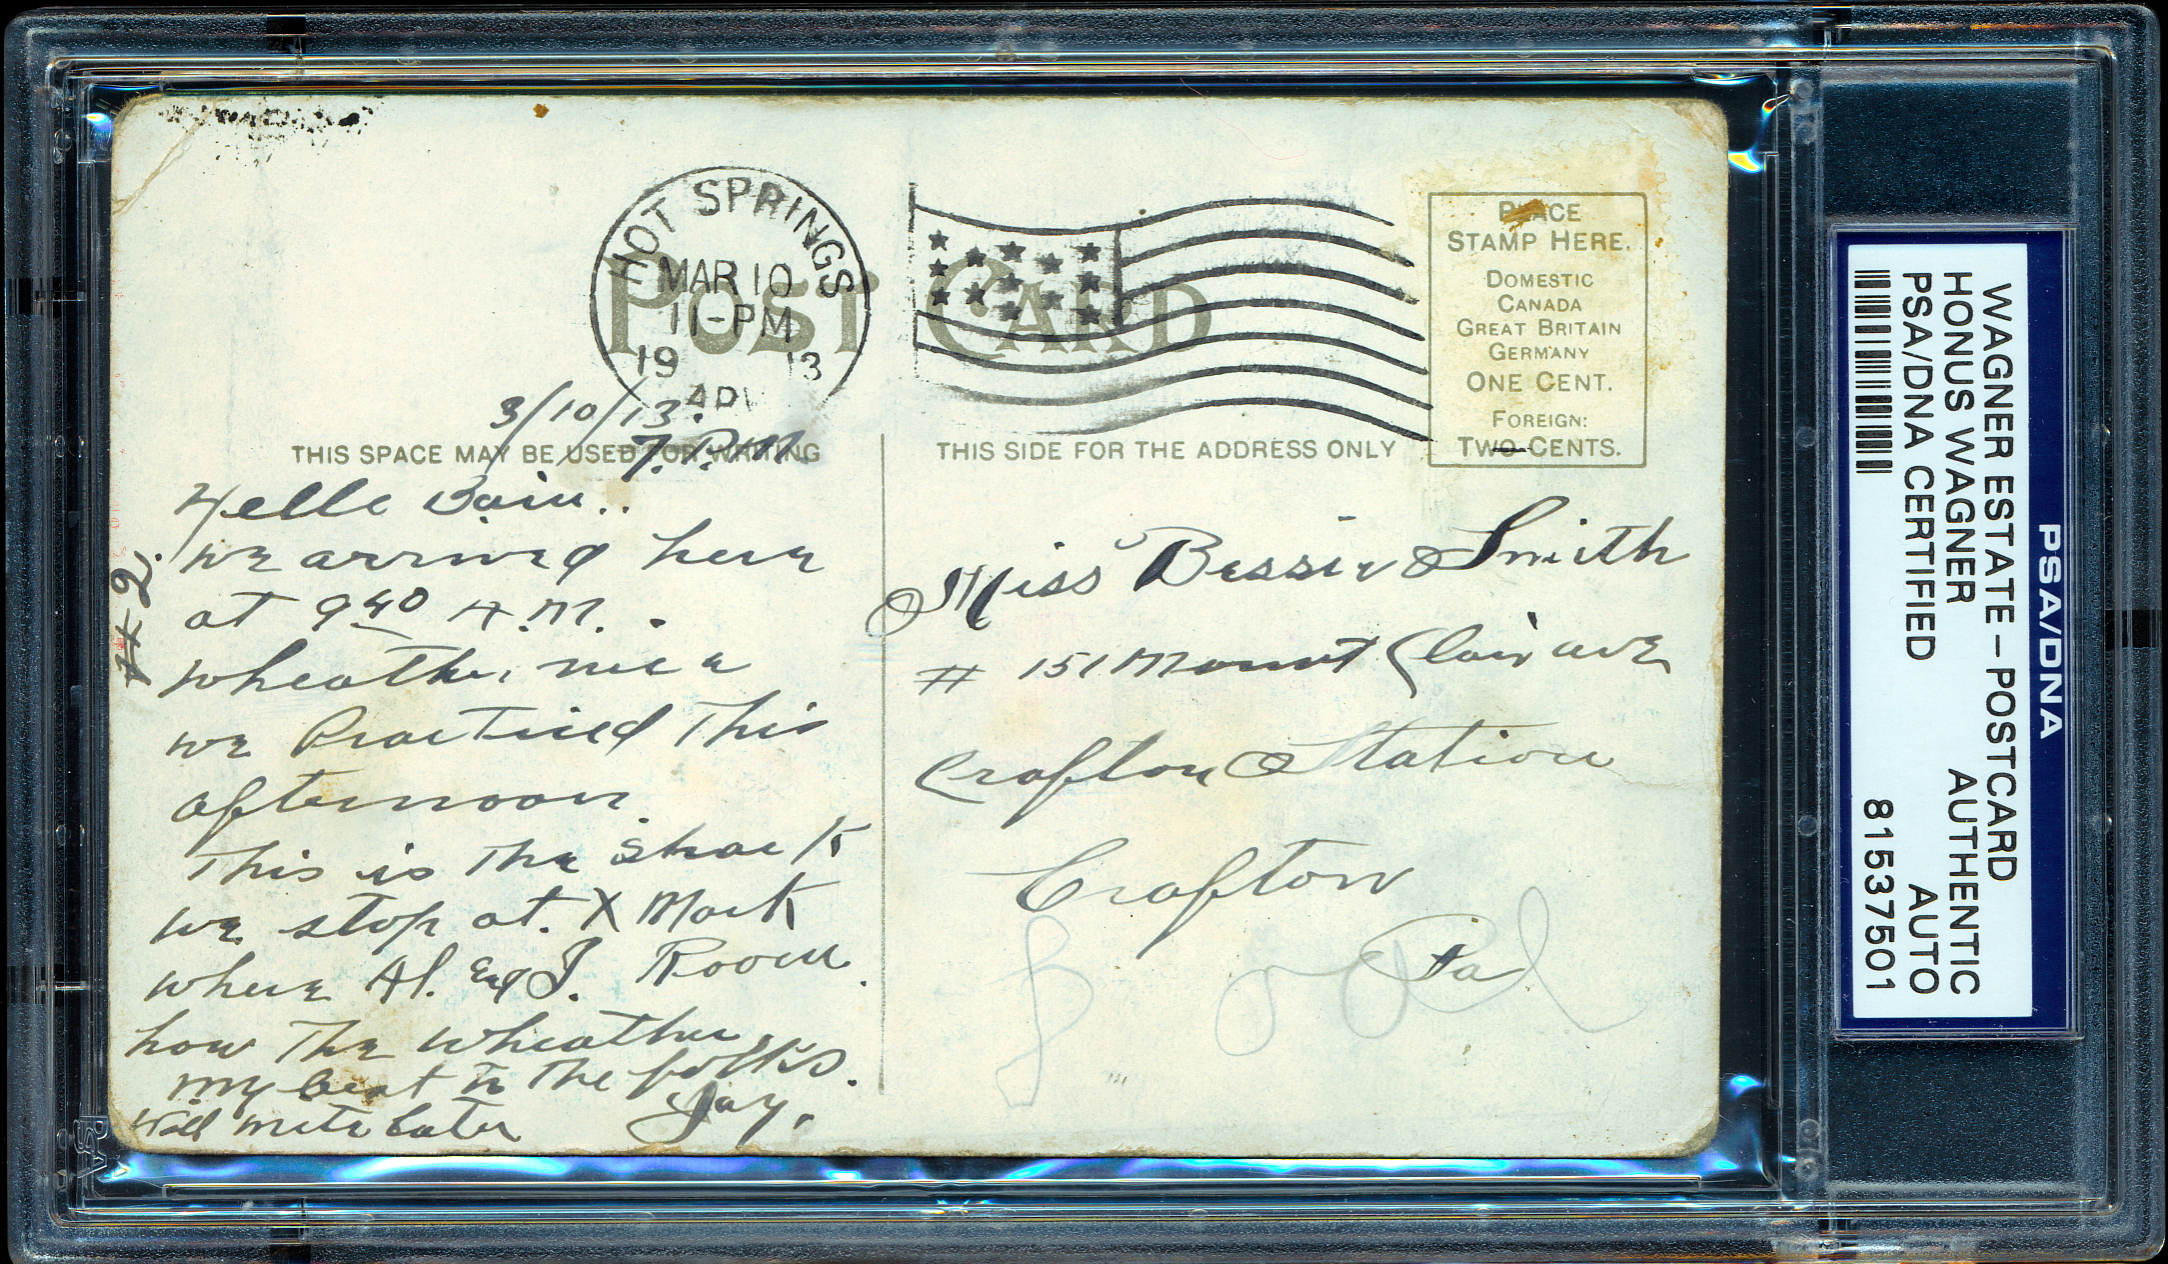 HOT SPRINGS
MAR 10
11-PM
1913
ARK
POST CARD
PLACE
STAMP HERE.
DOMESTIC
CANADA
GREAT BRITAIN
GERMANY
ONE CENT.
FOREIGN:
TWO CENTS.
THIS SPACE MAY BE USED FOR WRITING
THIS SIDE FOR THE ADDRESS ONLY
3/10/13.
7. P.M.
Hello Bain..
we arrived here
at 9 40 A.M.
wheather nice
we Practiced This
afternoon
This is The Shack
we stop at. X Mark
where Al. and J. Room.
how The wheather
my best to the folks.
Will write later Jay.
Miss Bessie Smith
# 151 Mount Clair ave
Crafton Station
Crafton
Pa
PSA/DNA
WAGNER ESTATE - POSTCARD
HONUS WAGNER AUTHENTIC
PSA/DNA CERTIFIED AUTO
81537501
PSA